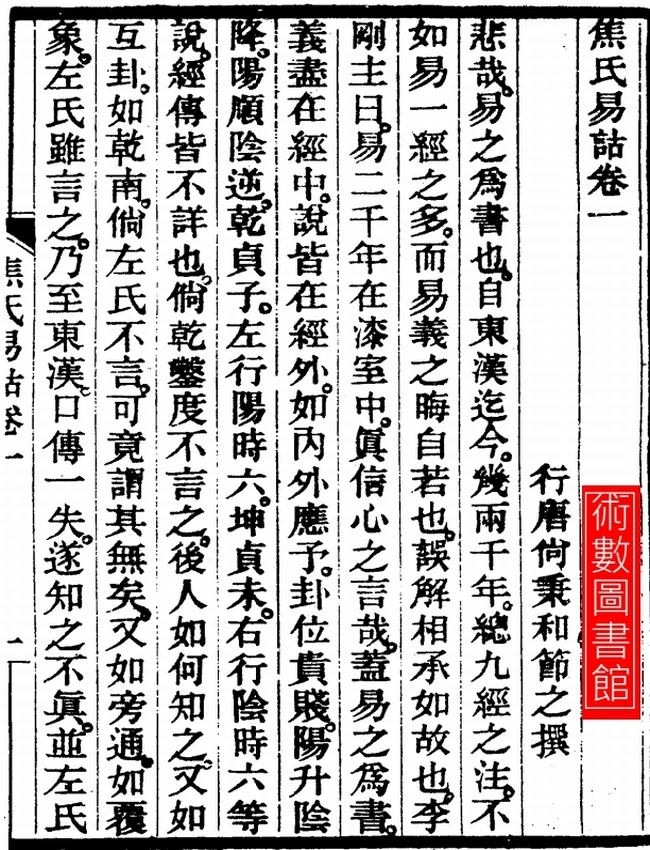 焦氏易詁卷一
行唐尙秉和節之撰
悲哉。易之爲書也。自東漢迄今。幾兩千年。總九經之注。不
如易一經之多。而易義之晦自若也。誤解相承如故也。李
剛主曰。易二千年在漆室中。眞信心之言哉。蓋易之爲書。
義盡在經中。說皆在經外。如內外應予。卦位貴賤。陽升陰
降。陽順陰逆。乾貞子。左行陽時六。坤貞未。右行陰時六等
說。經傳皆不詳也。倘乾鑿度不言之。後人如何知之。又如
互卦。如乾南。倘左氏不言。可竟謂其無矣。又如旁通。如覆
象。左氏雖言之。乃至東漢。口傳一失。遂知之不眞。並左氏
焦氏易詁卷一
一
術數圖書館